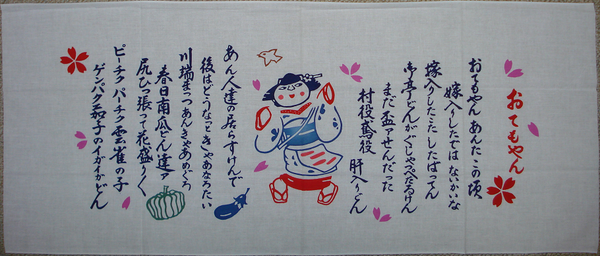 おてもやん
おてもやん あんたこの頃
嫁入りしたでは ないかいな
嫁入りしたこたしたばってん
御亭どんが ぐじゃっぺだるけん
まだ盃ァせんだった
村役鳶役 肝入りどん
あん人達の居らすけんで
後はどうなっときゃあなろたい
川端まつつあんきゃあめぐろ
春日南瓜どん達ァ
尻ひっ張って花盛りく
ピーチクパーチク雲雀の子
ゲンパク茄子のイガイガどん